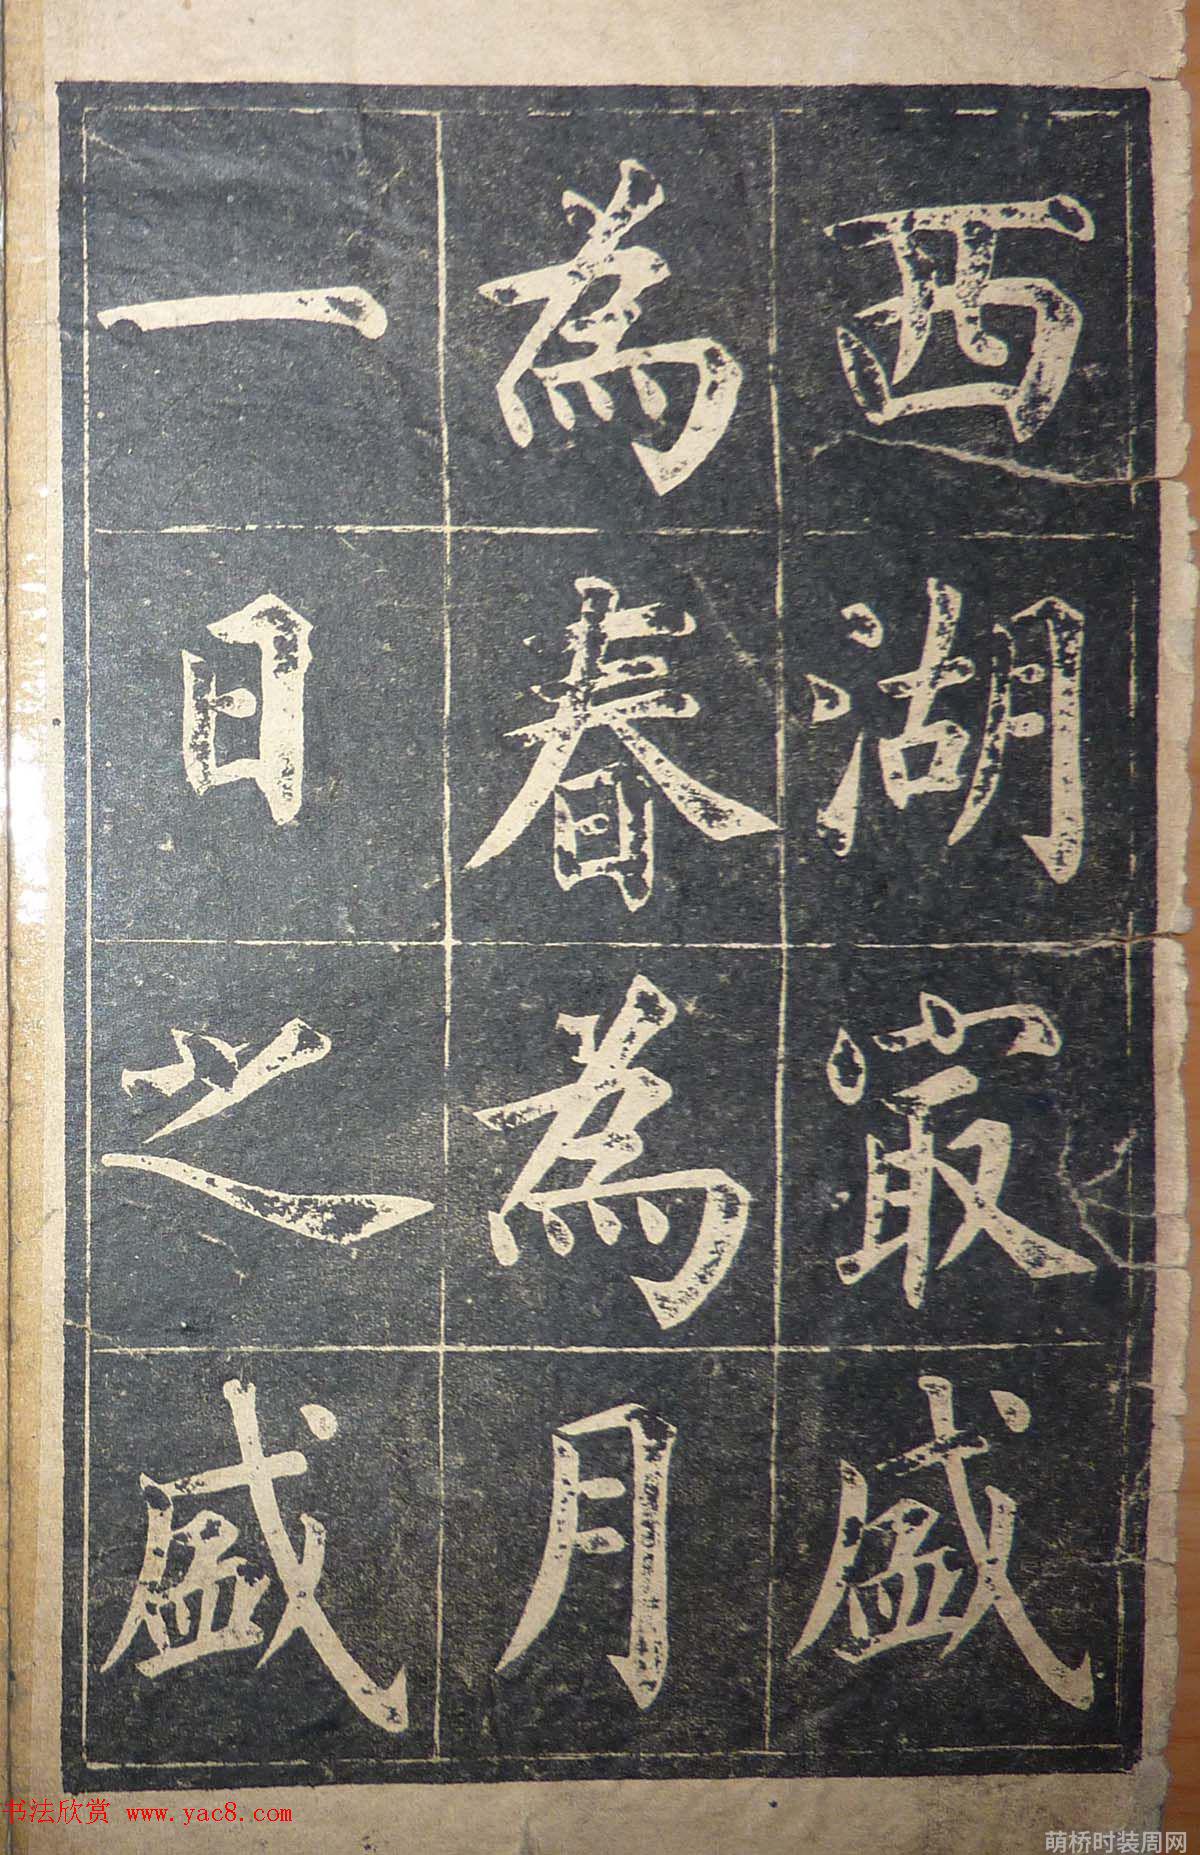 西湖㝡盛
為春為月
一日之盛
书法欣赏 www.yac8.com
萌桥时装周网